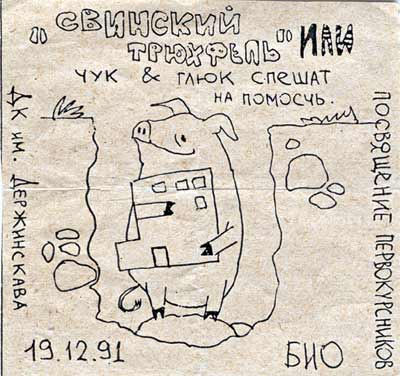 "СВИНСКИЙ
ТРЮХФЕЛЬ" ИЛИ
ЧУК & ГЛЮК СПЕШАТ
НА ПОМОСЧЬ.
ДК им. ДЕРЖИНСКАВА
ПОСВЯЩЕНИЕ ПЕРВОКУРСНИКОВ
19.12.91
БИО